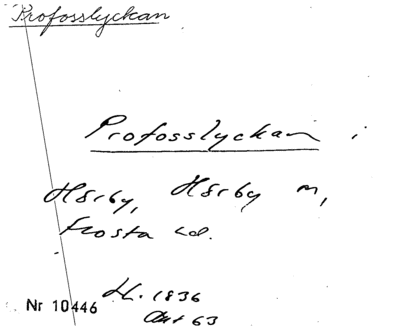 Profosslyckan
Profosslyckan i
Hörby, Hörby m,
Frosta hd.
Nr 10446
H. 1836
Akt 63